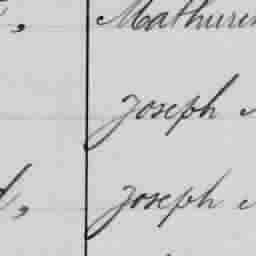 Mathurin
Joseph
Joseph